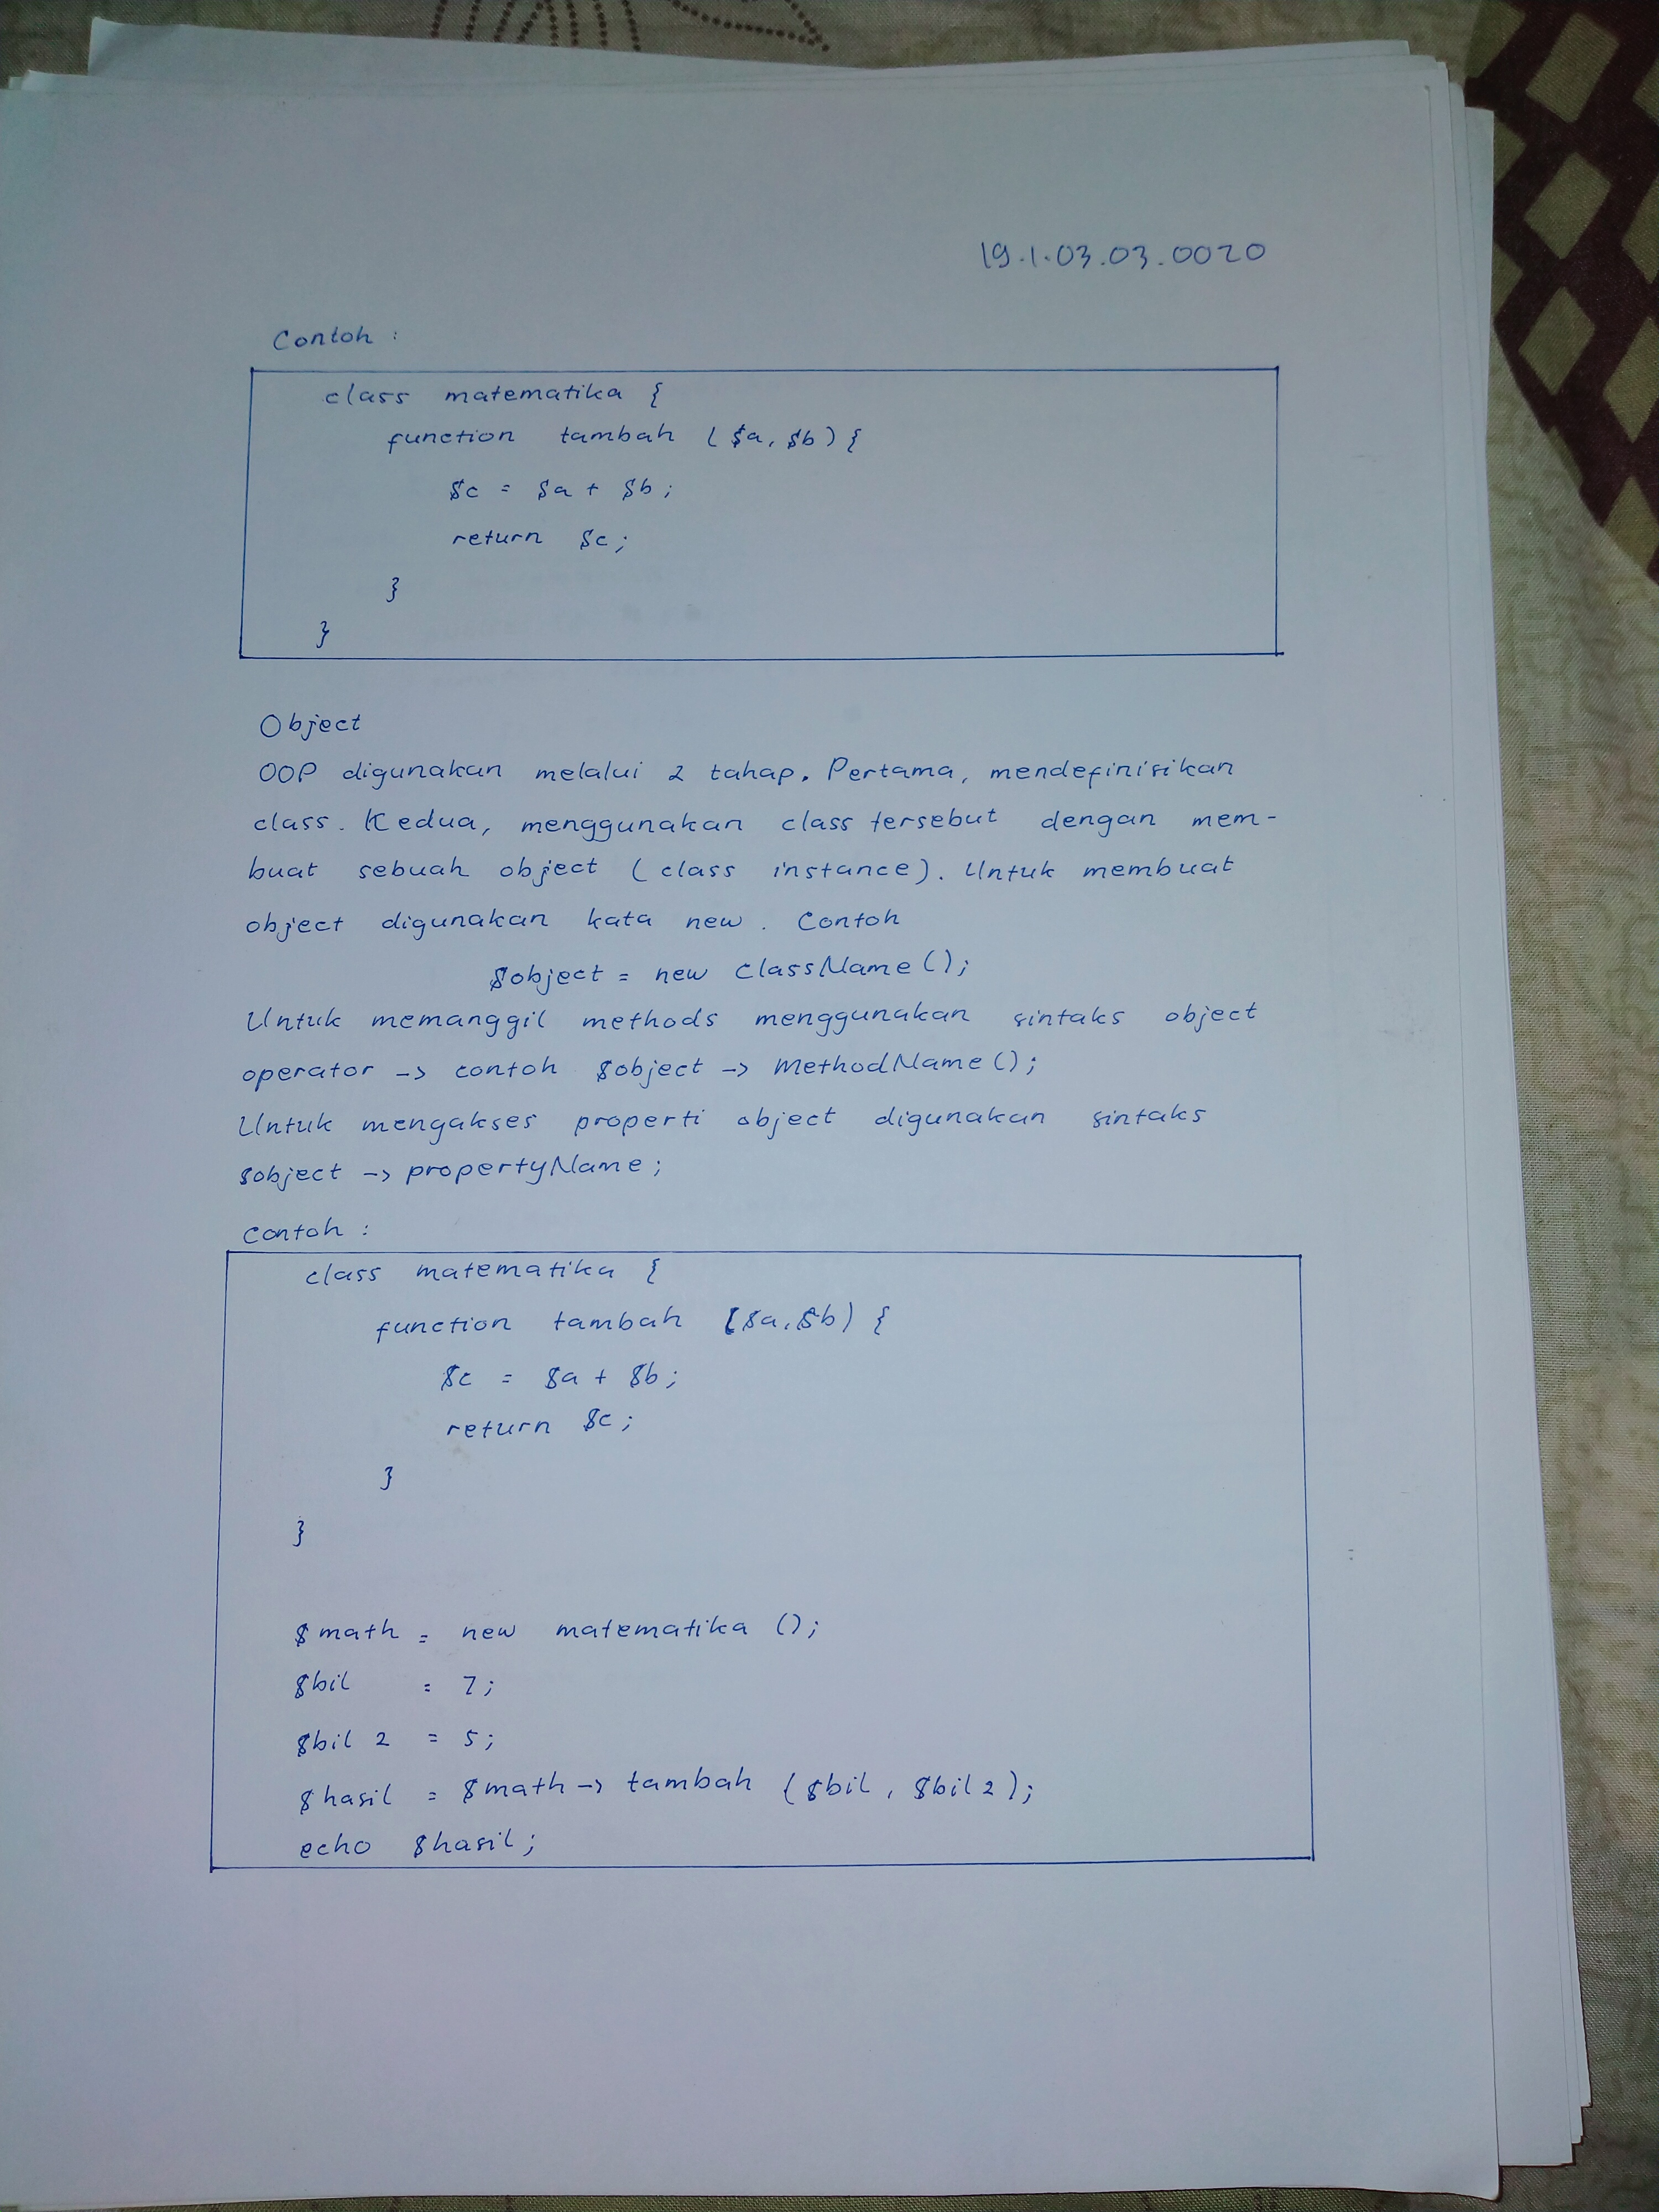 19.1.03.03.0020
Contoh :
class matematika {
function tambah ($a, $b) {
$c = $a + $b;
return $c;
}
}
Object
OOP digunakan melalui 2 tahap. Pertama, mendefinisikan
class. Kedua, menggunakan class tersebut dengan mem-
buat sebuah object (class instance). Untuk membuat
object digunakan kata new. Contoh
$object = new ClassName();
Untuk memanggil methods menggunakan sintaks object
operator -> contoh $object -> MethodName();
Untuk mengakses properti object digunakan sintaks
$object -> propertyName;
Contoh :
class matematika {
function tambah ($a, $b) {
$c = $a + $b;
return $c;
}
}
$math = new matematika ();
$bil = 7;
$bil 2 = 5;
$hasil = $math -> tambah ($bil, $bil 2);
echo $hasil;